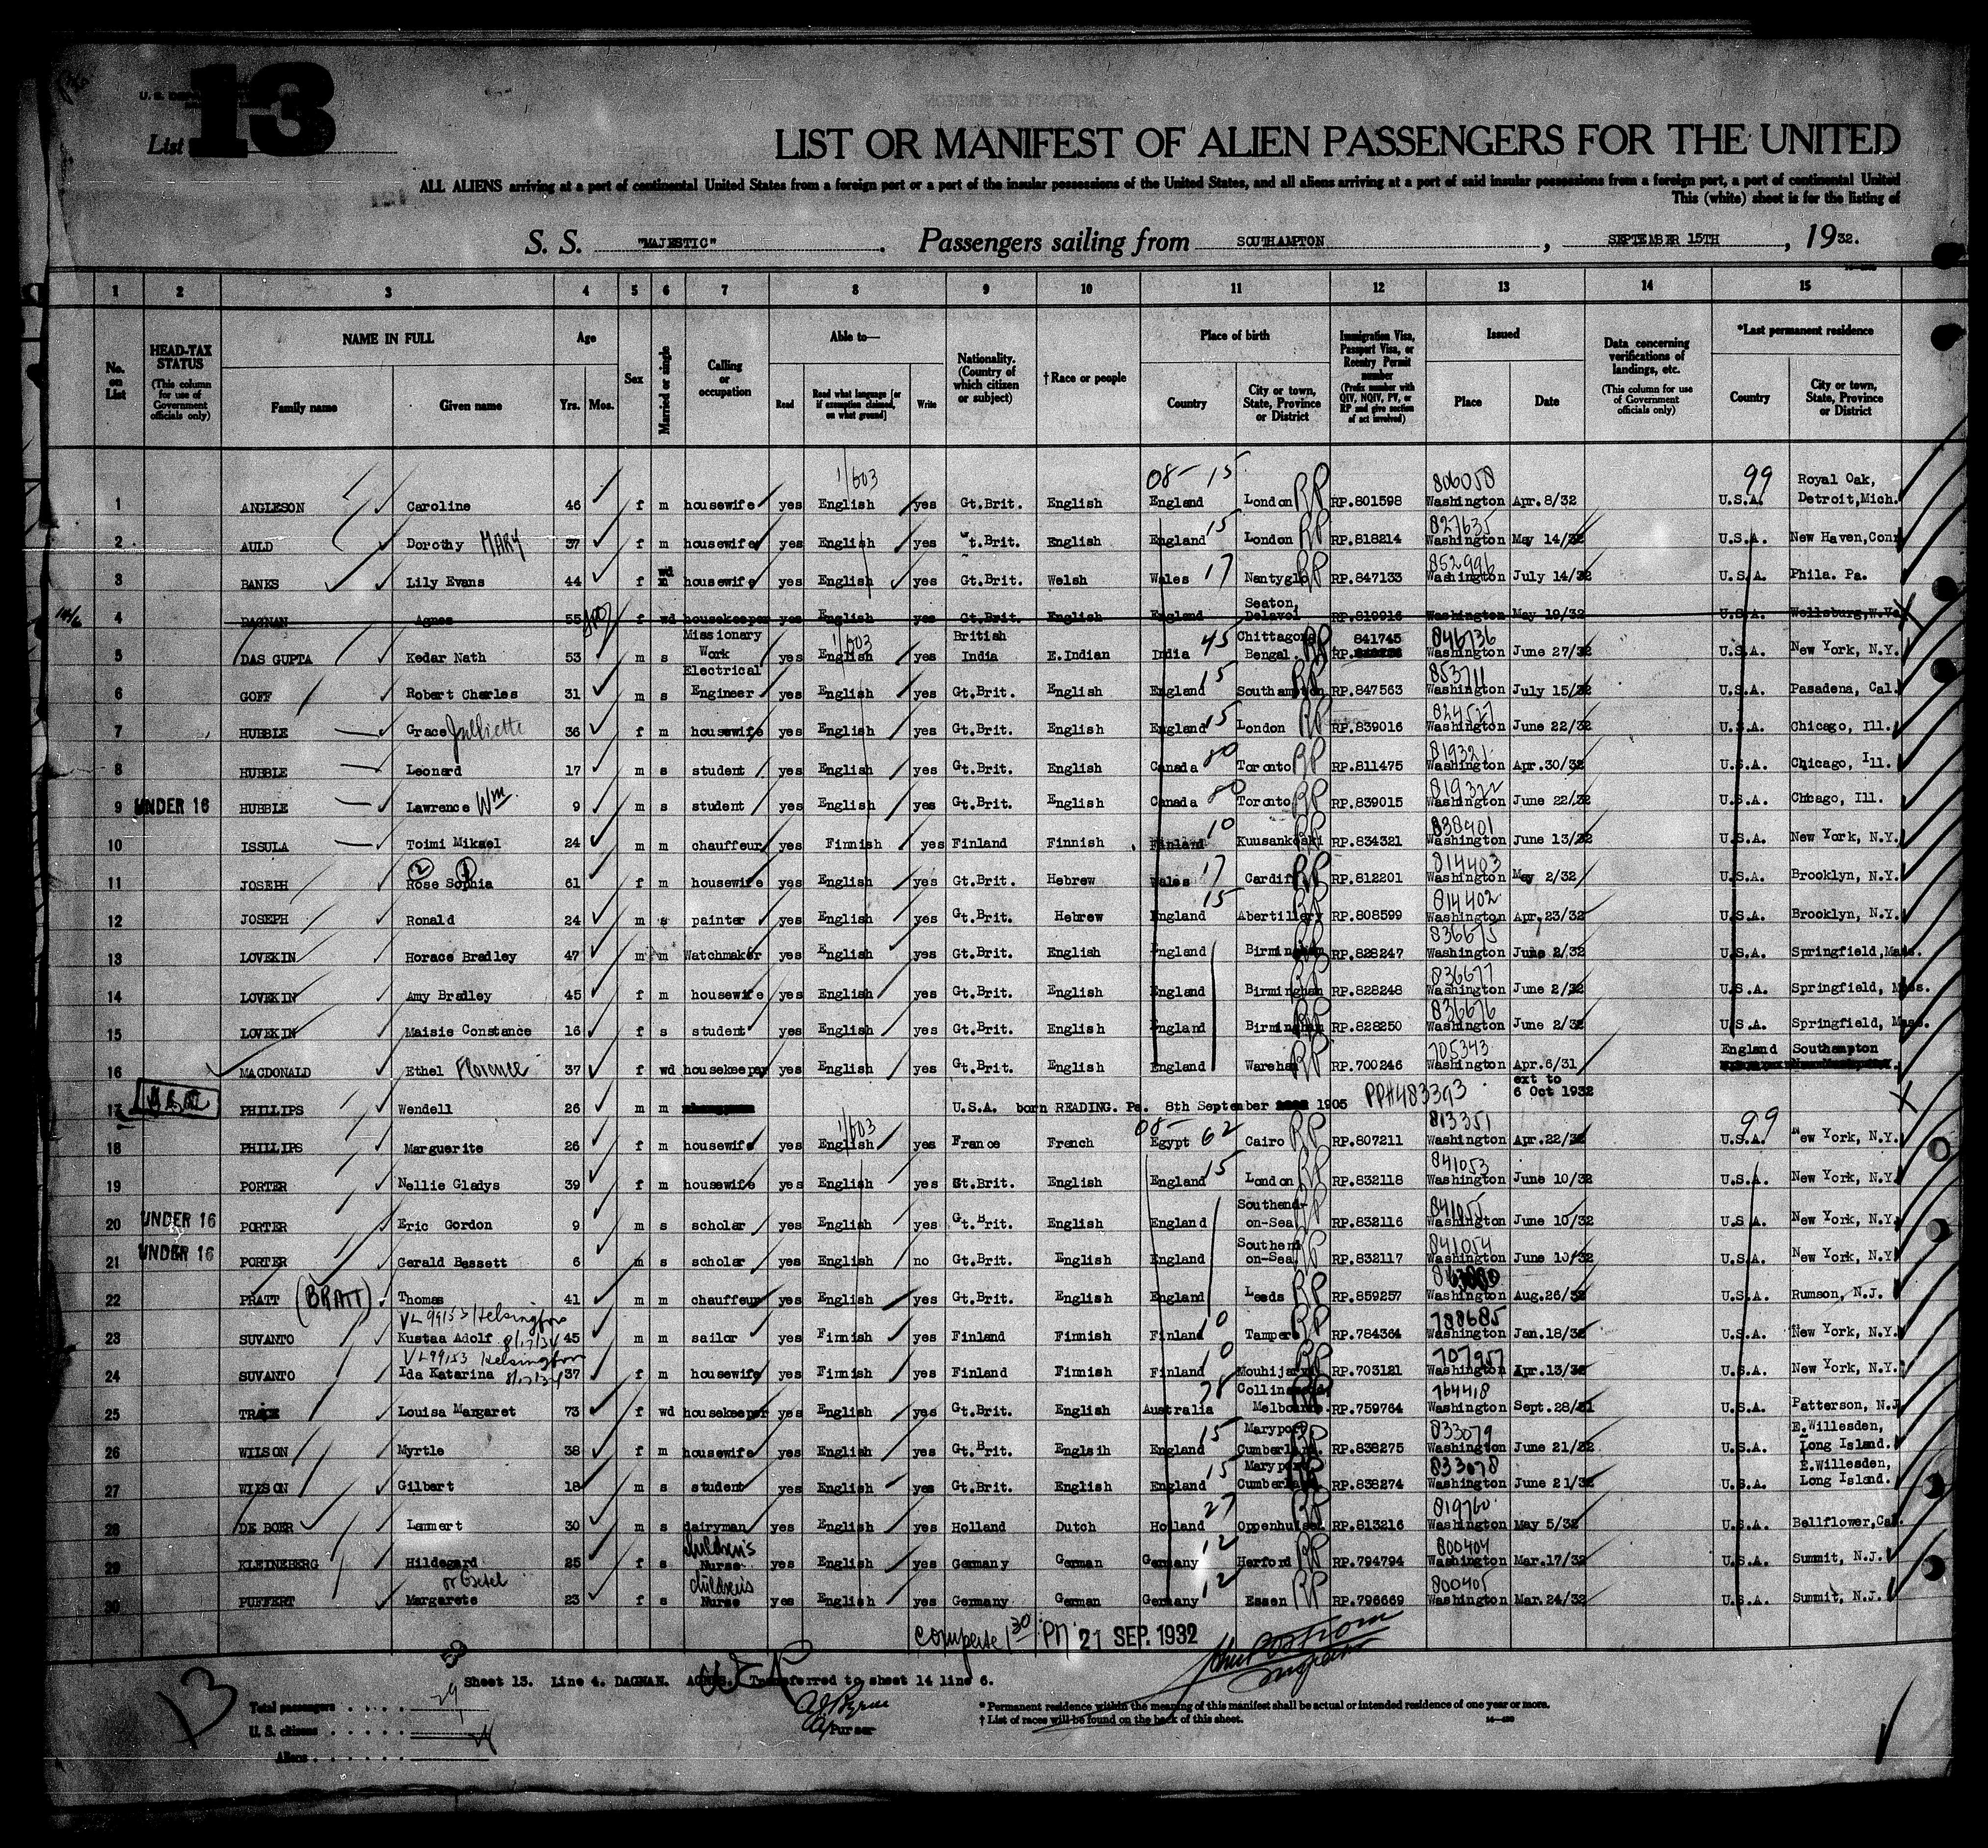 13
List
LIST OR MANIFEST OF ALIEN PASSENGERS FOR THE UNITED
ALL ALIENS arriving at a port of continental United States from a foreign port or a port of the insular possessions of the United States, and all aliens arriving at a port of said insular possessions from a foreign port, a port of continental United
This (white) sheet is for the listing of
S. S. "MAJESTIC". Passengers sailing from SOUTHAMPTON, SEPTEMBER 15TH, 1932.
1 2 3 4 5 6 7 8 9 10 11 12 13 14 15
No. on List
HEAD-TAX STATUS (This column for use of Government officials only)
NAME IN FULL Family name Given name
Age Yrs. Mos.
Sex
Married or single
Calling or occupation
Able to— Read Read what language [or if exemption claimed, on what ground] Write
Nationality. (Country of which citizen or subject)
†Race or people
Place of birth Country City or town, State, Province or District
Immigration Visa, Passport Visa, or Reentry Permit number (Prefix number with QIV, NQIV, PV, or RP and give section of act involved)
Issued Place Date
Data concerning verifications of landings, etc. (This column for use of Government officials only)
*Last permanent residence Country City or town, State, Province or District
1 ANGLESON Caroline 46 f m housewife yes English yes Gt.Brit. English England London RP RP.801598 806058 Washington Apr.8/32 99 U.S.A. Royal Oak, Detroit,Mich.
2 AULD Dorothy MARY 37 f m housewife yes English yes t.Brit. English England 15 London RP RP.818214 827635 Washington May 14/32 U.S.A. New Haven,Conn
3 BANKS Lily Evans 44 f wd housewife yes English yes Gt.Brit. Welsh Wales 17 Nantyglo RP RP.847133 852996 Washington July 14/32 U.S.A. Phila. Pa.
4 DAGNAN Agnes 55 f wd housekeeper yes English yes Gt.Brit. English England Seaton, Delavel RP.819916 Washington May 19/32 U.S.A. Wellsburg,W.Va
5 DAS GUPTA Kedar Nath 53 m s Missionary Work yes English yes British India E.Indian India 45 Chittagong Bengal. RP 841745 RP. 846736 Washington June 27/32 U.S.A. New York, N.Y.
6 GOFF Robert Charles 31 m s Electrical Engineer yes English yes Gt.Brit. English England 15 Southampton RP RP.847563 853711 Washington July 15/32 U.S.A. Pasadena, Cal.
7 HUBBLE Grace Julliette 36 f m housewife yes English yes Gt.Brit. English England 15 London RP RP.839016 824527 Washington June 22/32 U.S.A. Chicago, Ill.
8 HUBBLE Leonard 17 m s student yes English yes Gt.Brit. English Canada 80 Toronto RP RP.811475 819321 Washington Apr.30/32 U.S.A. Chicago, Ill.
9 UNDER 16 HUBBLE Lawrence Wm. 9 m s student yes English yes Gt.Brit. English Canada 80 Toronto RP RP.839015 819322 Washington June 22/32 U.S.A. Chicago, Ill.
10 ISSULA Toimi Mikael 24 m m chauffeur yes Finnish yes Finland Finnish Finland 10 Kuusankoski RP RP.834321 838401 Washington June 13/32 U.S.A. New York, N.Y.
11 JOSEPH Rose Sophia 61 f m housewife yes English yes Gt.Brit. Hebrew Wales 17 Cardiff RP RP.812201 814403 Washington May 2/32 U.S.A. Brooklyn, N.Y.
12 JOSEPH Ronald 24 m s painter yes English yes Gt.Brit. Hebrew England 15 Abertillery RP RP.808599 814402 Washington Apr.23/32 U.S.A. Brooklyn, N.Y.
13 LOVEKIN Horace Bradley 47 m m Watchmaker yes English yes Gt.Brit. English England Birmingham RP RP.828247 836675 Washington June 2/32 U.S.A. Springfield,Mass.
14 LOVEKIN Amy Bradley 45 f m housewife yes English yes Gt.Brit. English England Birmingham RP RP.828248 836677 Washington June 2/32 U.S.A. Springfield, Mass.
15 LOVEKIN Maisie Constance 16 f s student yes English yes Gt.Brit. English England Birmingham RP RP.828250 836676 Washington June 2/32 U.S.A. Springfield, Mass.
16 MACDONALD Ethel Florence 37 f wd housekeeper yes English yes Gt.Brit. English England Wareham RP RP.700246 705343 Washington Apr.6/31 ext to 6 Oct 1932 England Southampton
17 PHILLIPS Wendell 26 m m U.S.A. born READING. Pa. 8th September 1905 PP#483393
18 PHILLIPS Marguerite 26 f m housewife yes English yes France French Egypt 62 Cairo RP RP.807211 813351 Washington Apr.22/32 99 U.S.A. New York, N.Y.
19 PORTER Nellie Gladys 39 f m housewife yes English yes Gt.Brit. English England 15 London RP RP.832118 841053 Washington June 10/32 U.S.A. New York, N.Y.
20 UNDER 16 PORTER Eric Gordon 9 m s scholar yes English yes Gt.Brit. English England Southend-on-Sea RP RP.832116 841055 Washington June 10/32 U.S.A. New York, N.Y.
21 UNDER 16 PORTER Gerald Bassett 6 m s scholar yes English no Gt.Brit. English England Southend on-Sea. RP RP.832117 841054 Washington June 10/32 U.S.A. New York, N.Y
22 PRATT (BRATT) Thomas 41 m m chauffeur yes English yes Gt.Brit. English England Leeds RP RP.859257 Washington Aug.26/32 U.S.A. Rumson, N.J.
VL 99153 Helsingfors 8/17/34
23 SUVANTO Kustaa Adolf 45 m m sailor yes Finnish yes Finland Finnish Finland 10 Tampere RP RP.784364 788685 Washington Jan.18/32 U.S.A. New York, N.Y.
VL 99153 Helsingfors 8/17/34
24 SUVANTO Ida Katarina 37 f m housewife yes Finnish yes Finland Finnish Finland 10 Mouhijarvi RP RP.703121 707957 Washington Apr.13/32 U.S.A. New York, N.Y.
25 Louisa Margaret 73 f wd housekeeper yes English yes Gt.Brit. English Australia 78 Melbourne. RP.759764 764418 Washington Sept.28/31 U.S.A. Patterson, N.J
26 WILSON Myrtle 38 f m housewife yes English yes Gt.Brit. Englsih England 15 Maryport Cumberland. RP.838275 833079 Washington June 21/32 U.S.A. E.Willesden, Long Island.
27 WILSON Gilbert 18 m s student yes English yes Gt.Brit. English England 15 Maryport Cumberland RP.838274 833078 Washington June 21/32 U.S.A. E.Willesden, Long Island.
28 DE BOER Lammert 30 m s dairyman yes English yes Holland Dutch Holland 27 Oppenhuizen RP RP.813216 819760 Washington May 5/32 U.S.A. Bellflower,Cal.
29 KLEINEBERG Hildegard 25 f s children's Nurse yes English yes Germany German Germany 12 Herford RP RP.794794 800404 Washington Mar.17/32 U.S.A. Summit, N.J.
30 PUFFERT Margarete 23 f s children's Nurse yes English yes Germany German Germany 12 Essen RP RP.796669 800405 Washington Mar.24/32 U.S.A. Summit, N.J.
1 30 PM 21 SEP. 1932
Sheet 13. Line 4. DAGNAN. AGNES. Transferred to sheet 14 line 6.
13
Total passengers
U. S. citizens
Aliens
Purser
* Permanent residence within the meaning of this manifest shall be actual or intended residence of one year or more.
† List of races will be found on the back of this sheet.